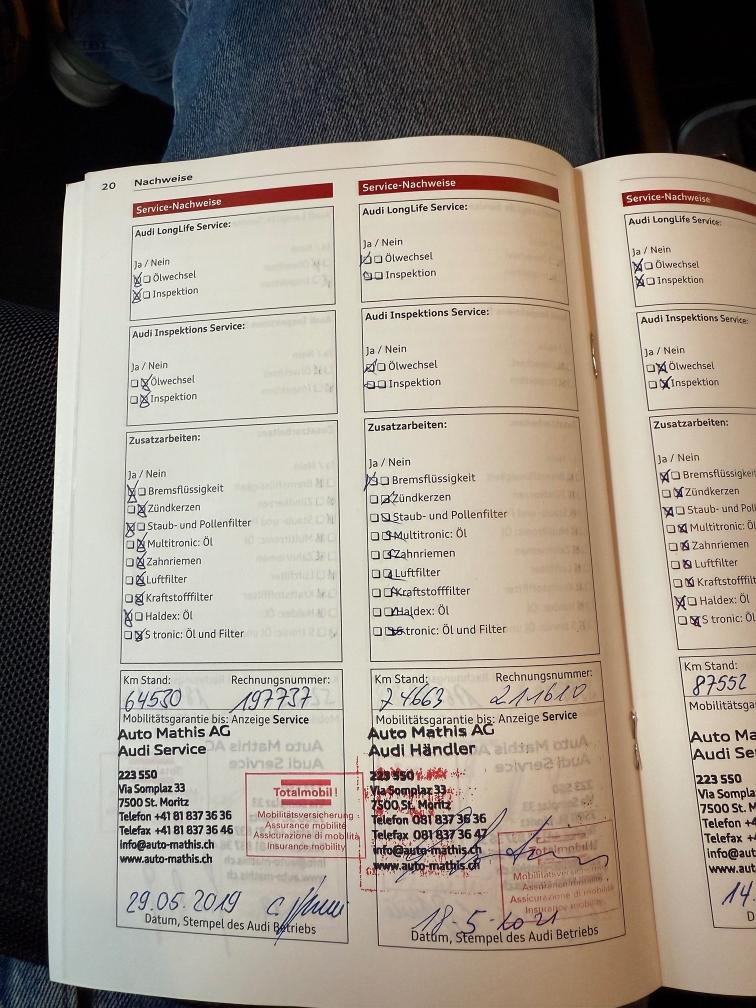 20 Nachweise
Service-Nachweise
Audi LongLife Service:
Ja / Nein
Ölwechsel
Inspektion
Audi Inspektions Service:
Ja / Nein
Ölwechsel
Inspektion
Zusatzarbeiten:
Ja / Nein
Bremsflüssigkeit
Zündkerzen
Staub- und Pollenfilter
Multitronic: Öl
Zahnriemen
Luftfilter
Kraftstofffilter
Haldex: Öl
S tronic: Öl und Filter
Km Stand: Rechnungsnummer:
64530 197737
Mobilitätsgarantie bis: Anzeige Service
Auto Mathis AG
Audi Service
223 550
Via Somplaz 33
7500 St. Moritz
Telefon +41 81 837 36 36
Telefax +41 81 837 36 46
info@auto-mathis.ch
www.auto-mathis.ch
Totalmobil!
Mobilitätsversicherung
Assurance mobilité
Assicurazione di mobilità
Insurance mobility
29.05.2019
Datum, Stempel des Audi Betriebs
Service-Nachweise
Audi LongLife Service:
Ja / Nein
Ölwechsel
Inspektion
Audi Inspektions Service:
Ja / Nein
Ölwechsel
Inspektion
Zusatzarbeiten:
Ja / Nein
Bremsflüssigkeit
Zündkerzen
Staub- und Pollenfilter
Multitronic: Öl
Zahnriemen
Luftfilter
Kraftstofffilter
Haldex: Öl
S tronic: Öl und Filter
Km Stand: Rechnungsnummer:
74663 211610
Mobilitätsgarantie bis: Anzeige Service
Auto Mathis AG
Audi Händler
223 550
Via Somplaz 33
7500 St. Moritz
Telefon 081 837 36 36
Telefax 081 837 36 47
info@auto-mathis.ch
www.auto-mathis.ch
Totalmobil!
Assicurazione di mobilità
Insurance mobility
18-5-2021
Datum, Stempel des Audi Betriebs
Service-Nachweise
Audi LongLife Service:
Ja / Nein
Ölwechsel
Inspektion
Audi Inspektions Service:
Ja / Nein
Ölwechsel
Inspektion
Zusatzarbeiten:
Ja / Nein
Bremsflüssigkeit
Zündkerzen
Staub- und Poll
Multitronic: Ö
Zahnriemen
Luftfilter
Kraftstofffilt
Haldex: Öl
S tronic: Öl u
Km Stand:
87552
Mobilitätsga
Auto Ma
Audi Se
223 550
Via Somp
7500 St.
Telefon +
Telefax +
info@aut
www.aut
14.
D